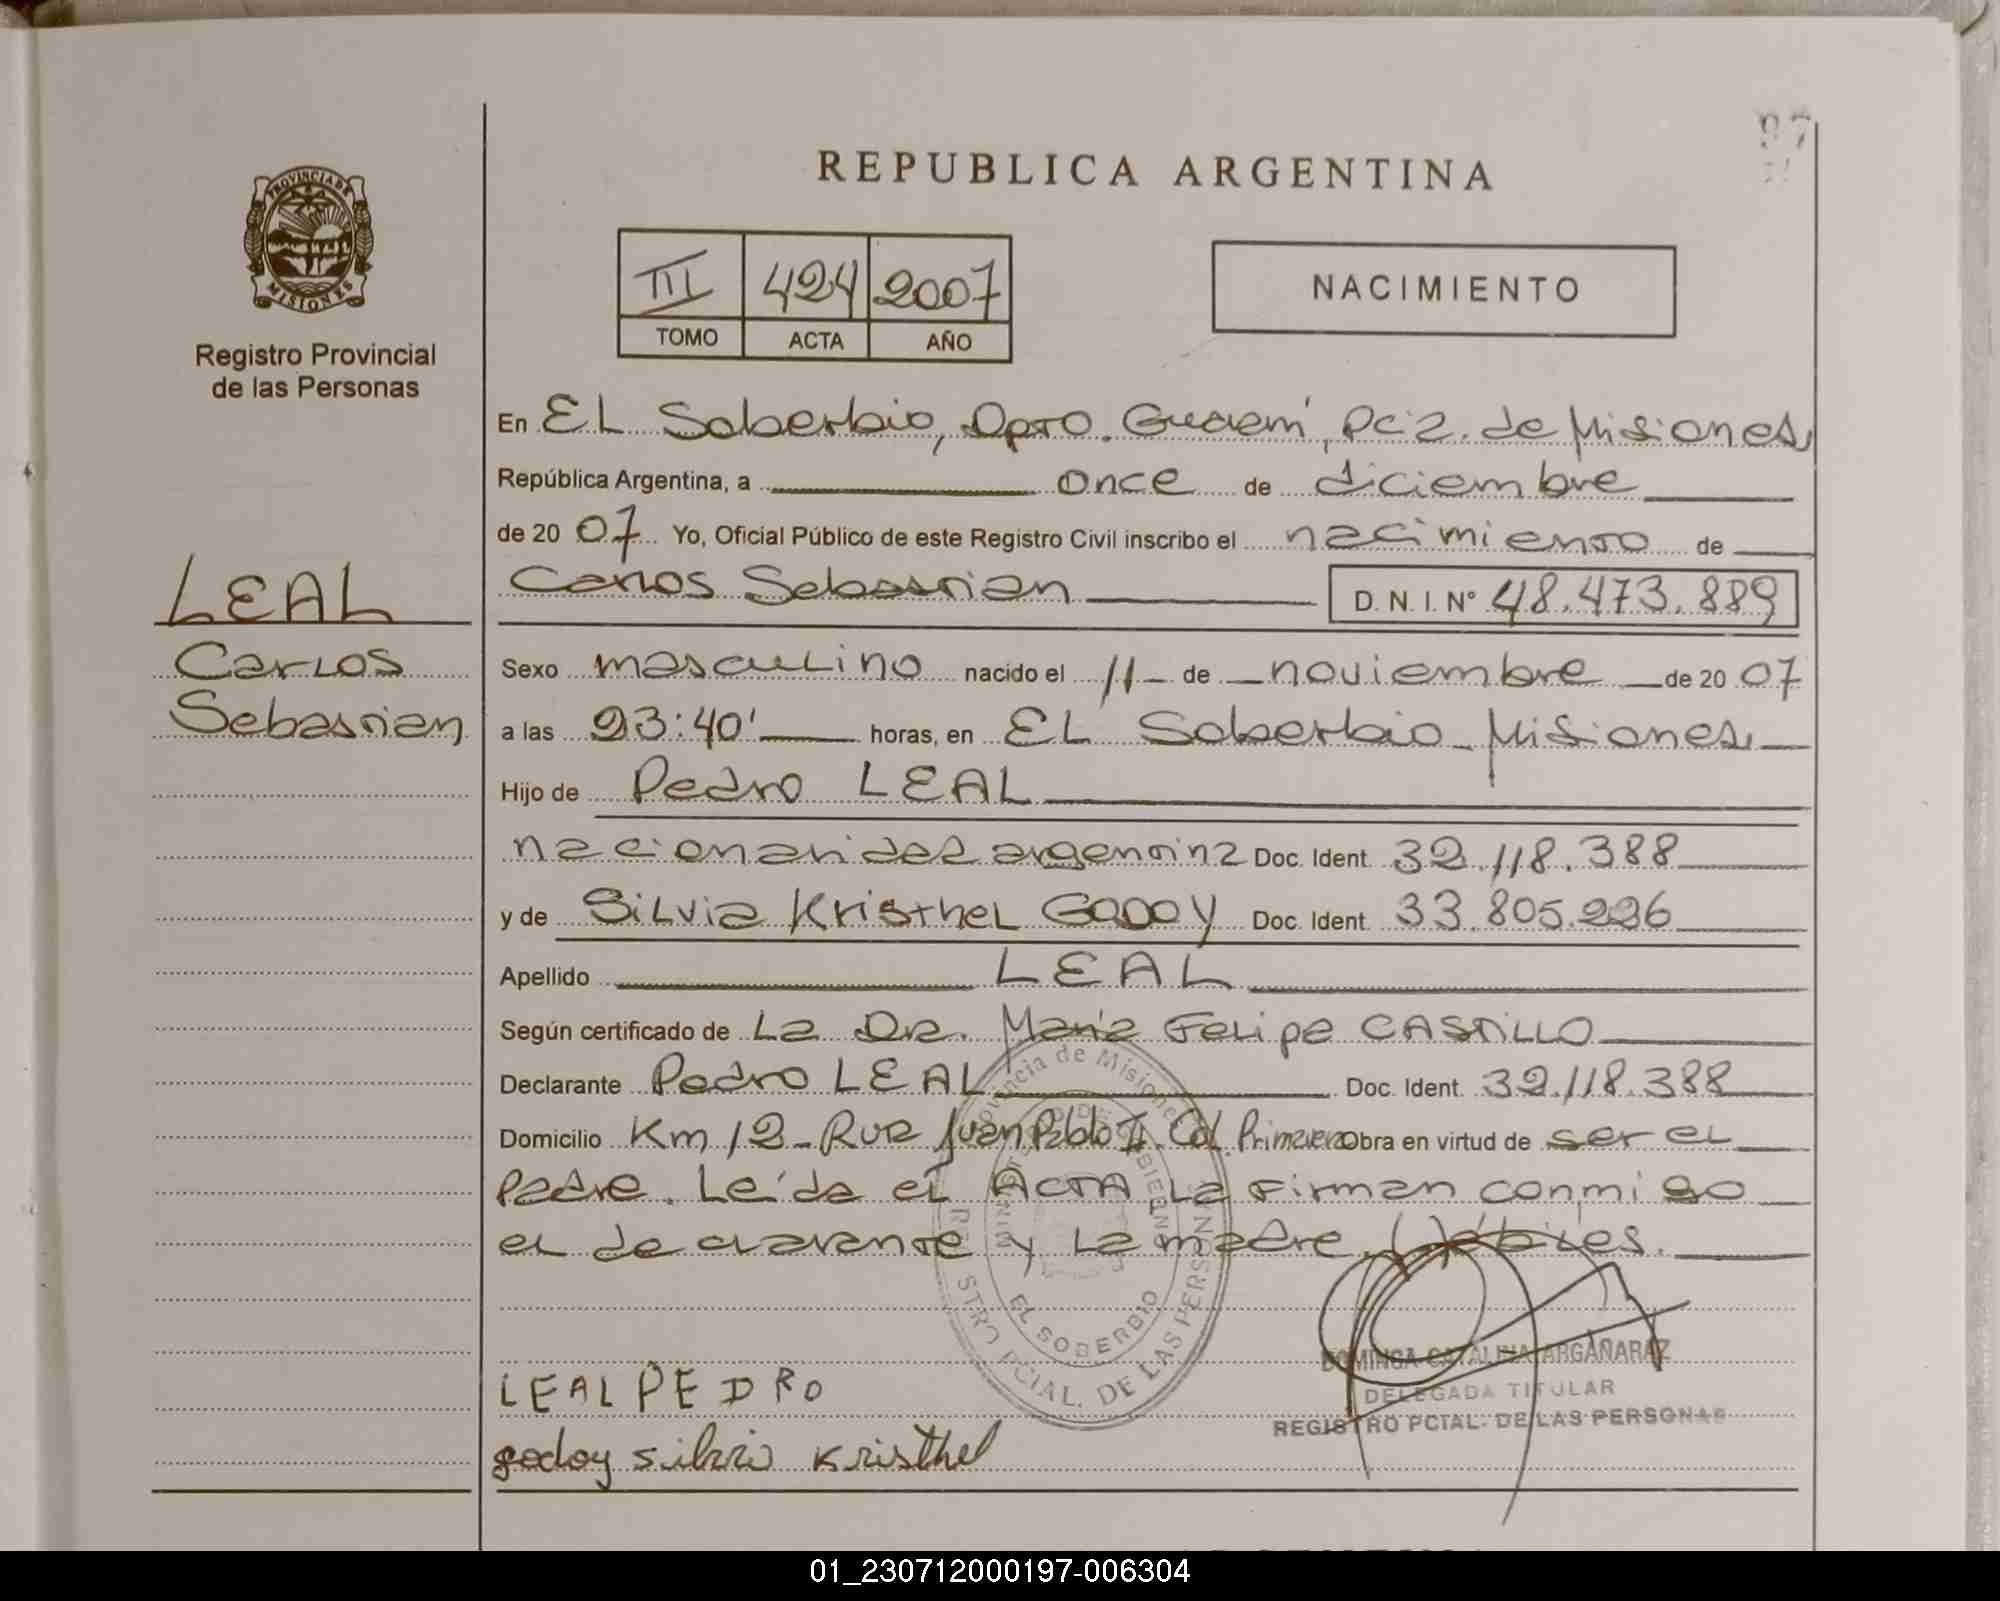 97
REPUBLICA ARGENTINA
PROVINCIA DE
MISIONES
Registro Provincial
de las Personas
III 424 2007
TOMO ACTA AÑO
NACIMIENTO
En EL Soberbio, Dpto. Guaraní, Pcia. de Misiones,
República Argentina, a once de diciembre
de 20 07 Yo, Oficial Público de este Registro Civil inscribo el nacimiento de
Carlos Sebastian D. N. I. Nº 48.473.889
LEAL
Carlos
Sebastian
Sexo masculino nacido el 11 de noviembre de 20 07
a las 23:40' horas, en EL Soberbio - Misiones
Hijo de Pedro LEAL
nacionalidad argentina Doc. Ident. 32.118.388
y de Silvia Kristhel GODOY Doc. Ident. 33.805.226
Apellido LEAL
Según certificado de La Dra. María Felipe CASTILLO
Declarante Pedro LEAL Doc. Ident. 32.118.388
Domicilio Km 12 - Rua Juan Pablo II. Col. Primavera Obra en virtud de ser el
Padre. Leída el ACTA La firman conmigo
el declarante y La madre. Hábiles.
Provincia de Misiones
MINISTERIO DE GOBIERNO
EL SOBERBIO
REGISTRO PCIAL. DE LAS PERSONAS
DOMINGA CATALINA ARGAÑARAZ
DELEGADA TITULAR
REGISTRO PCIAL. DE LAS PERSONAS
LEAL PEDRO
godoy silvia Kristhel
01_230712000197-006304